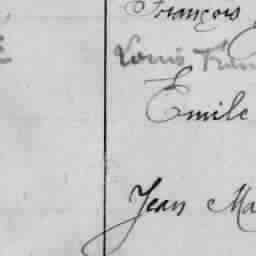 François
Louis
Emile
Jean Ma